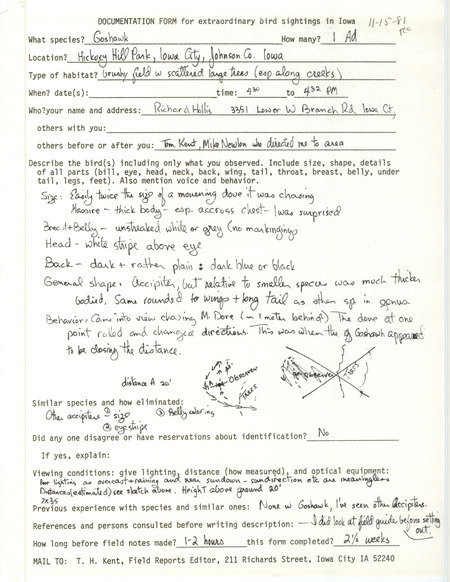 DOCUMENTATION FORM for extraordinary bird sightings in Iowa 11-15-81
rec
What species? Goshawk How many? 1 Ad
Location? Hickory Hill Park, Iowa City, Johnson Co. Iowa
Type of habitat? brushy field w scattered large trees (esp along creeks)
When? date(s): time: 4:30 to 4:32 PM
Who? your name and address: Richard Hollis 3351 Lower W Branch Rd Iowa Ct,
others with you:
others before or after you: Tom Kent, Mike Newlon who directed me to area
Describe the bird(s) including only what you observed. Include size, shape, details
of all parts (bill, eye, head, neck, back, wing, tail, throat, breast, belly, under
tail, legs, feet). Also mention voice and behavior.
Size: Easily twice the size of a mourning dove it was chasing
Massive - thick body - esp. accross chest - I was surprised
Breast & Belly - unstreaked white or gray (no markings)
Head - white stripe above eye
Back - dark & rather plain: dark blue or black
General shape: Accipiter, but relative to smaller species was much thicker
bodied. Same rounded wings & long tail as other sp in genus.
Behavior: Came into view chasing M. Dove (~ 1 meter behind) The dove at one
point rolled and changed directions. This was when the Goshawk appeared
to be closing the distance.
distance A 20' Observer Trees Observer Trees
Similar species and how eliminated:
Other accipiters ① size ③ Belly coloring
② eye stripe
Did any one disagree or have reservations about identification? No
If yes, explain:
Viewing conditions: give lighting, distance (how measured), and optical equipment:
Poor lighting as overcast & raining and near sundown - sun direction etc are meaningless
Distances (estimated) see sketch above. Height above ground 20'
7X35
Previous experience with species and similar ones: None w Goshawk, I've seen other Accipiters.
References and persons consulted before writing description: - I did look at field guide before setting
out.
How long before field notes made? 1-2 hours this form completed? 2½ weeks
MAIL TO: T. H. Kent, Field Reports Editor, 211 Richards Street, Iowa City IA 52240